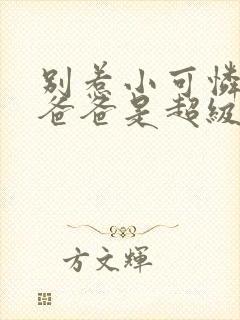 别惹小可憐
爸爸是超級
方文輝